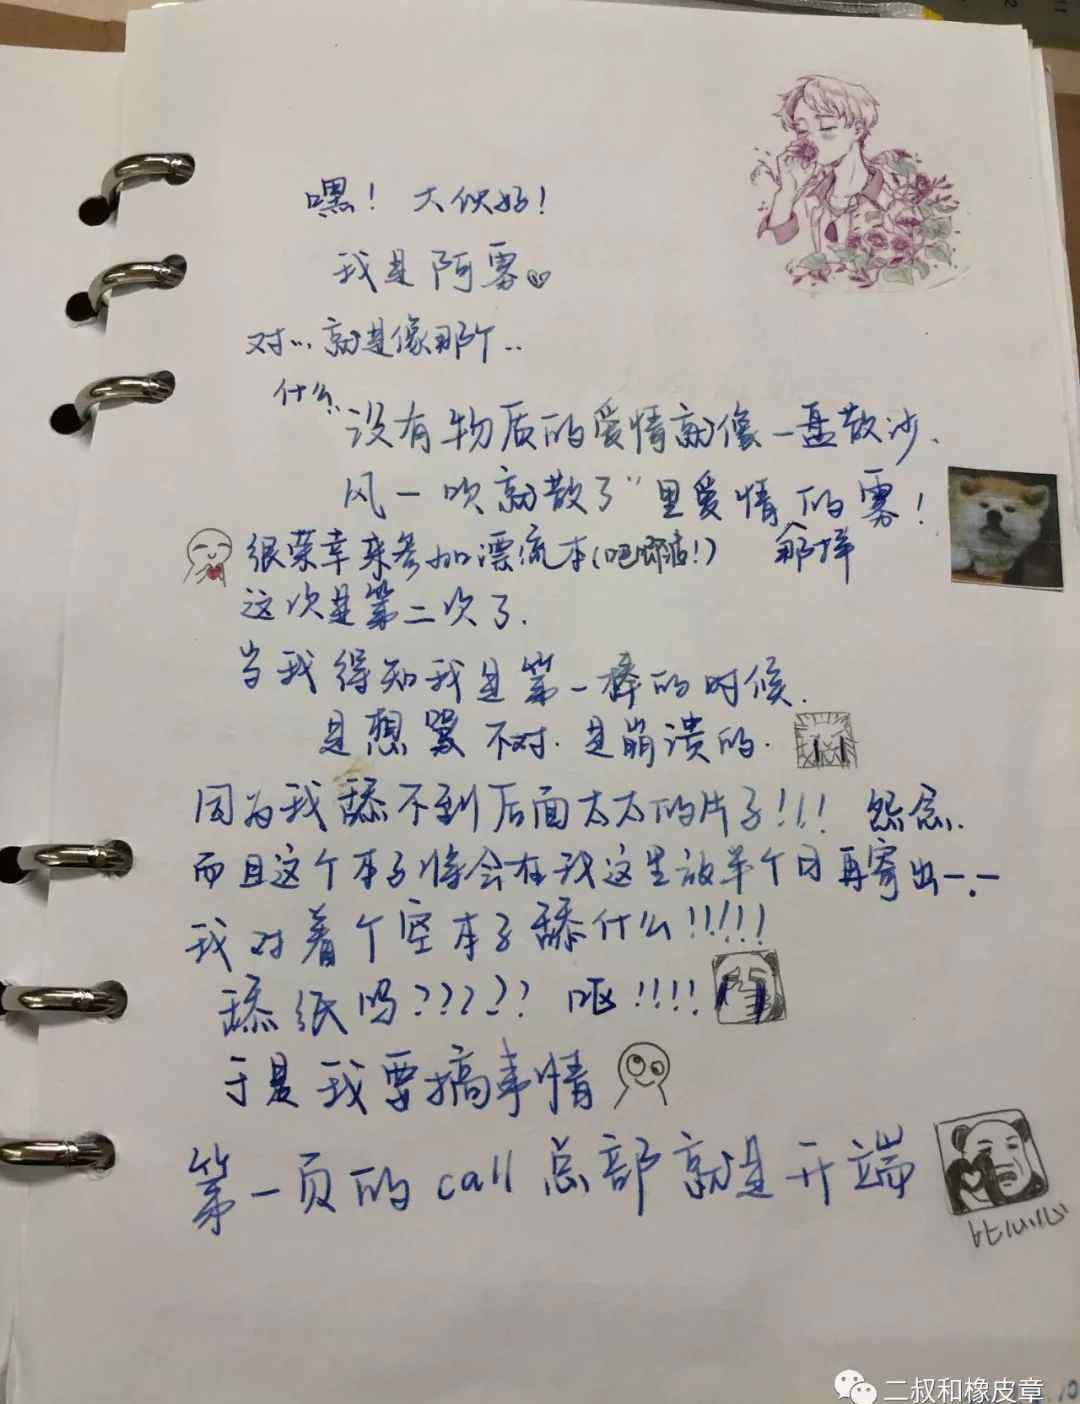 嘿！大伙好！
我是阿雾
对…就是像那个..
什么..
没有物质的爱情就像一盘散沙、
风一吹就散了”里爱情的雾！
很荣幸来参加漂流本(吧唧店!) 那样
这次是第二次了.
当我得知我是第一棒的时候.
是想骂 不对. 是崩溃的.
因为我舔不到后面太太的片子!!! 怨念.
而且这个本子将会在我这里放半个月再寄出-.-
我对着个空本子舔什么!!!!!
舔纸吗????? 呕!!!!
于是我要搞事情
第一页的call总部就是开端
比心心
二叔和橡皮章